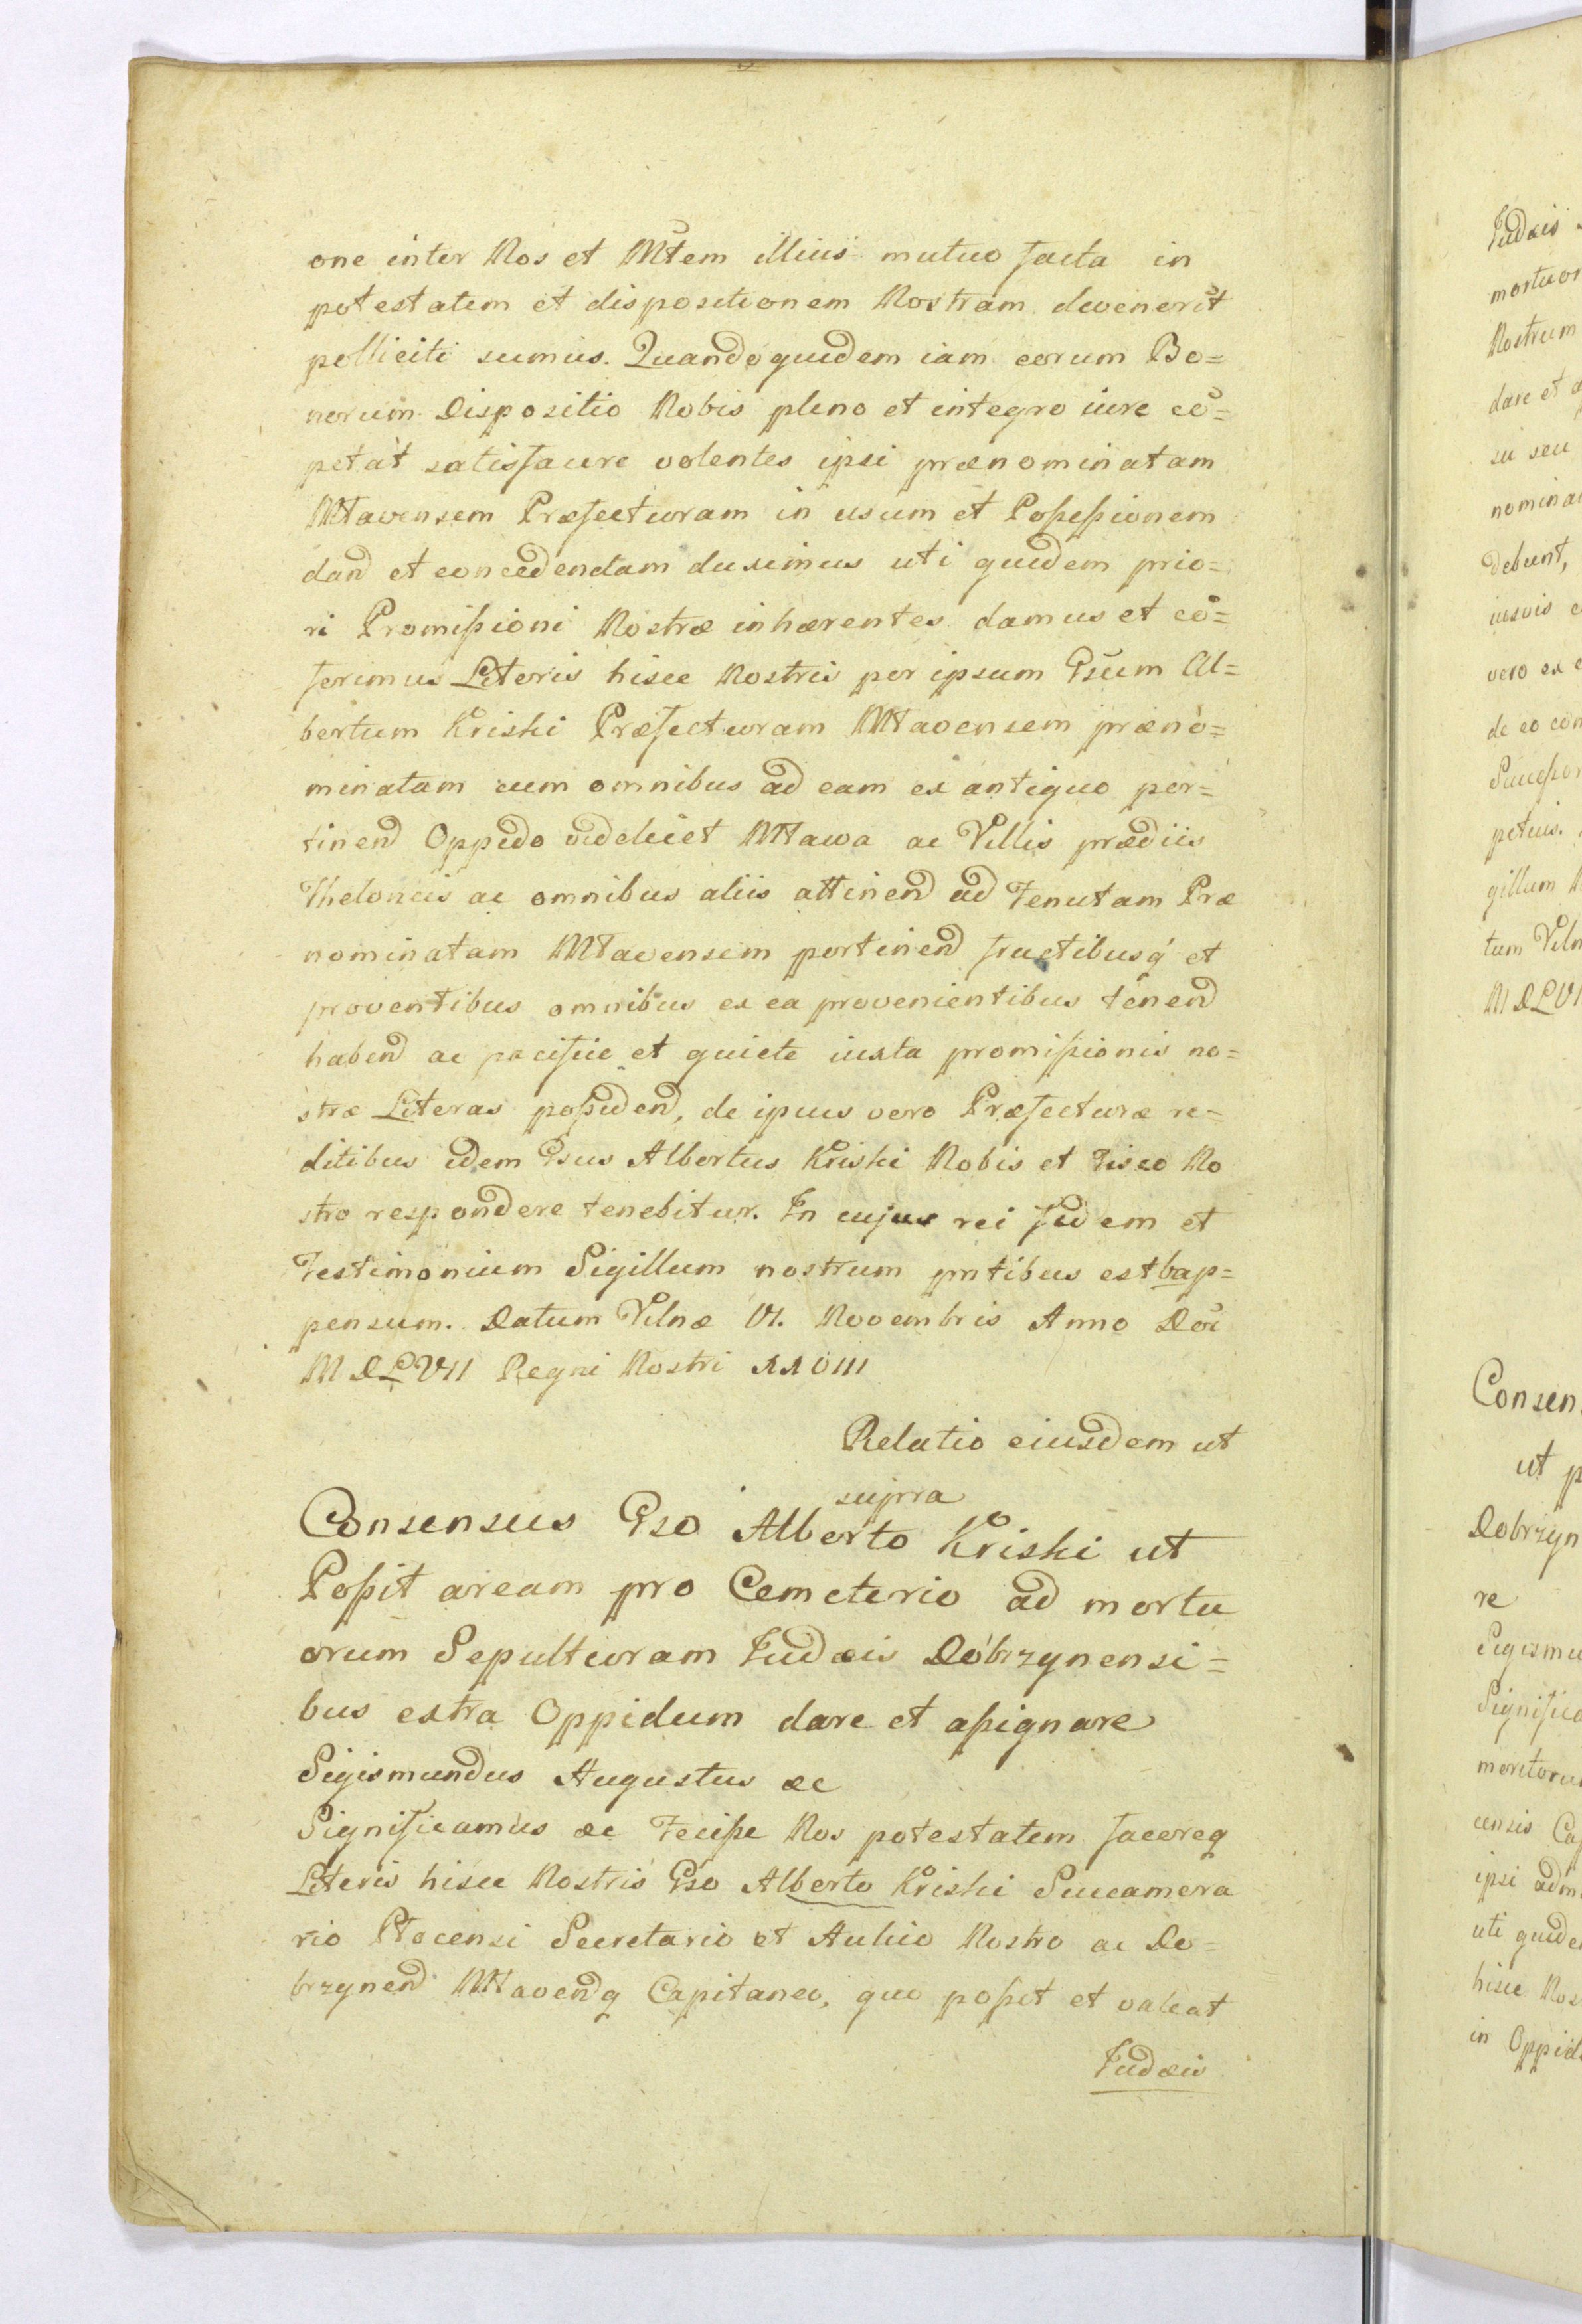 one inter Nos et Mtem illius mutuo facta in
potestatem et dispositionem Nostram devenerit
polliciti sumus. Quandoquidem iam eorum Bo=
norum Dispositio Nobis pleno et integro iure cō=
petat satisfacere volentes ipsi prænominatam
Mlavensem Præfecturam in usum et Poßeßionem
dand et concedendam duximus uti quidem prio=
ri Promißioni Nostræ inhærentes damus et cō=
ferimus Literis hisce Nostris per ipsum Gsum Al=
bertum Kriski Præfecturam Mlavensem præno=
minatam cum omnibus ad eam ex antiquo per=
tinend Oppido videlicet Mlawa ac Villis prædiis
Theloneis ac omnibus aliis attinend ad Tenutam Præ
nominatam Mlavensem pertinend fructibusq et
proventibus omnibus ex ea provenientibus tenend
habend ac pacifice et quiete iuxta promißionis no=
stræ Literas poßidend, de ipsius vero Præfecturæ re=
ditibus idem Gsus Albertus Kriski Nobis et Fisco No
stro respondere tenebitur. In cujus rei fidem et
Testimonium Sigillum nostrum pntibus est subap=
pensum. Datum Vilnæ VI. Novembris Anno Doi
MDLVII Regni Nostri XXVIII
Relatio eiusdem ut
supra
Consensus Gso Alberto Kriski ut
Poßit aream pro Cemeterio ad mortu
orum Sepulturam Judæis Dobrzynensi=
bus extra Oppidum dare et aßignare
Sigismundus Augustus &c
Significamus &c Feciße Nos potestatem facereq
Literis hisce Nostris Gso Alberto Kriski Succamera
rio Plocensi Secretario et Aulico Nostro ac Do=
brzynend Mlavendq Capitaneo, quo poßit et valeat
Judæis
Judæis
mortuor
Nostrum
dare et a
su seu
nomina
debeunt,
iusvis
vero ex
de eo con
Sucеßor
petuis.
gillum N
tum Viln
MDLVI
Consen
ut p
Dobrzyn
re
Sigismu
Significa
meritoru
censis Ca
ipsi adm
uti quide
hisce Nos
in Oppid